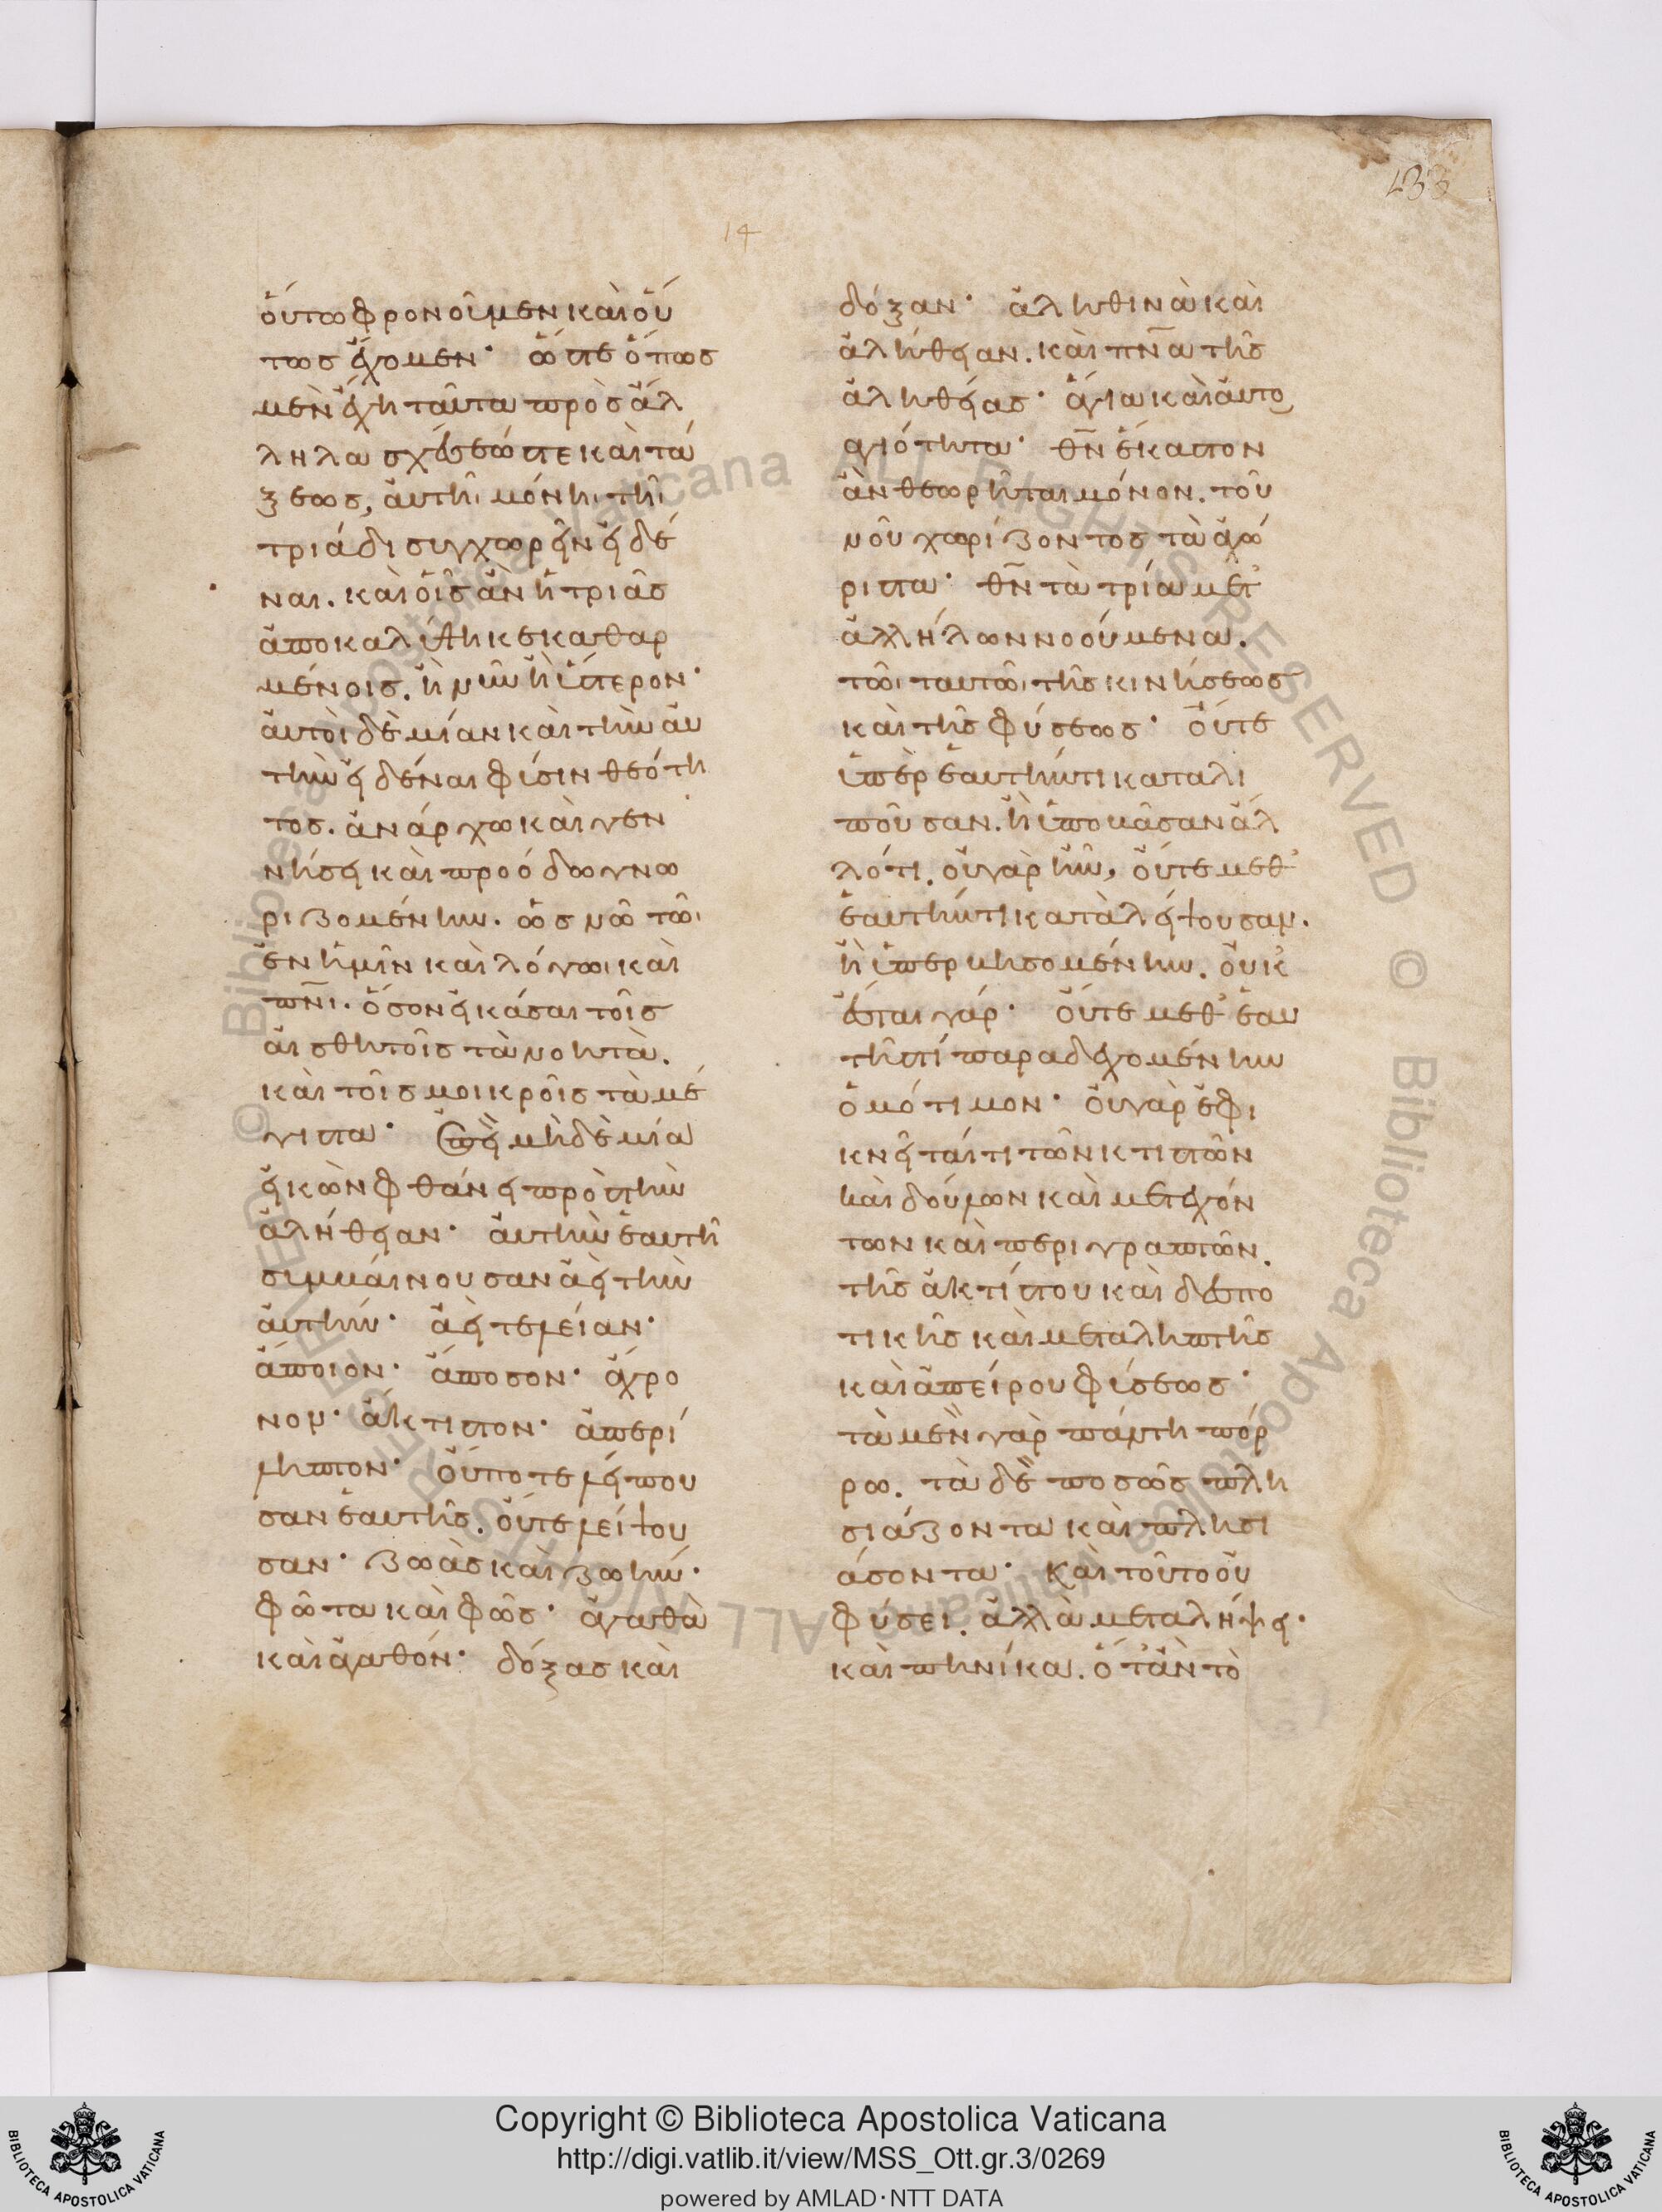 133
14
οὕτω φρονοῖμεν καὶ οὕ
τως ἔχοιμεν· ὥστε ὅπως
μὲν ἔχει ταῦτα πρὸς ἄλ
ληλα σχέσεώς τε καὶ τά
ξεως, αὐτῆι μόνηι τῆι
τριάδι συγχωρεῖν εἰδέ
ναι. καὶ οἷς ἂν ἡ τριὰς
ἀποκαλύψῃ κεκαθαρ
μένοις. ἢ νῦν ἢ ὕστερον·
αὐτοὶ δὲ μίαν καὶ τὴν αὐ
τὴν εἰδέναι φύσιν θεότη
τος. ἀνάρχω καὶ γεν
νήσει καὶ προόδω γνω
ριζομένην. ὡς νῶ τῶι
ἐν ἡμῖν καὶ λόγωι καὶ
πνι. ὅσον εἰκάσαι τοῖς
αἰσθητοῖς τὰ νοητὰ.
καὶ τοῖς μοικροῖς τὰ μέ
γιστα· ἐπεὶ μηδὲ μία
εἰκὼν φθάνει πρὸς τὴν
ἀλήθειαν· αὐτὴν ἑαυτῆ
συμβαίνουσαν ἀεὶ τὴν
αὐτήν· ἀεὶ τελείαν·
ἄποιον· ἄποσον· ἄχρο
νον· ἄκτιστον· ἀπερί
ληπτον· οὔποτε λείπου
σαν ἑαυτῆς. οὔτε λείψου
σαν· ζωὰς καὶ ζωήν·
φῶτα καὶ φῶς· ἀγαθὰ
καὶ ἀγαθόν· δόξας καὶ
δόξαν· ἀληθινὰ καὶ
ἀλήθειαν. καὶ πνα τῆς
ἀληθείας· ἅγια καὶ αὐτο
αγιότητα· θν ἕκαστον
ἂν θεωρῆται μόνον. τοῦ
νοῦ χωρίζοντος τὰ ἀχώ
ριστα· θν τὰ τρία μετ'
ἀλλήλων νοούμενα.
τῶι ταυτῶι τῆς κινήσεως
καὶ τῆς φύσεως· οὔτε
ὑπὲρ ἑαυτήν τι καταλι
ποῦσαν. ἢ ὑπερβᾶσαν ἄλ
λό τι. οὐ γὰρ ἦν, οὔτε μεθ'
ἑαυτήν τι καταλείψουσαν.
ἢ ὑπερβησομένην. οὐκ
ἔσται γάρ· οὔτε μεθ' ἑαυ
τῆς τί παραδεχομένην
ὁμότιμον· οὐ γὰρ ἐφι
κνεῖταί τι τῶν κτιστῶν
καὶ δούλων καὶ μετεχόν
των καὶ περιγραπτῶν.
τῆς ἀκτίστου καὶ δεσπο
τικῆς καὶ μεταληπτῆς
καὶ ἀπείρου φύσεως·
τὰ μὲν γὰρ πάντη πόρ
ρω. τὰ δὲ ποσῶς πλη
σιάζοντα καὶ πλησι
άσοντα· καὶ τοῦτο οὐ
φύσει. ἀλλὰ μεταλήψει·
καὶ πηνίκα. ὅτ' ἂν τὸ
Copyright © Biblioteca Apostolica Vaticana
http://digi.vatlib.it/view/MSS_Ott.gr.3/0269
powered by AMLAD·NTT DATA